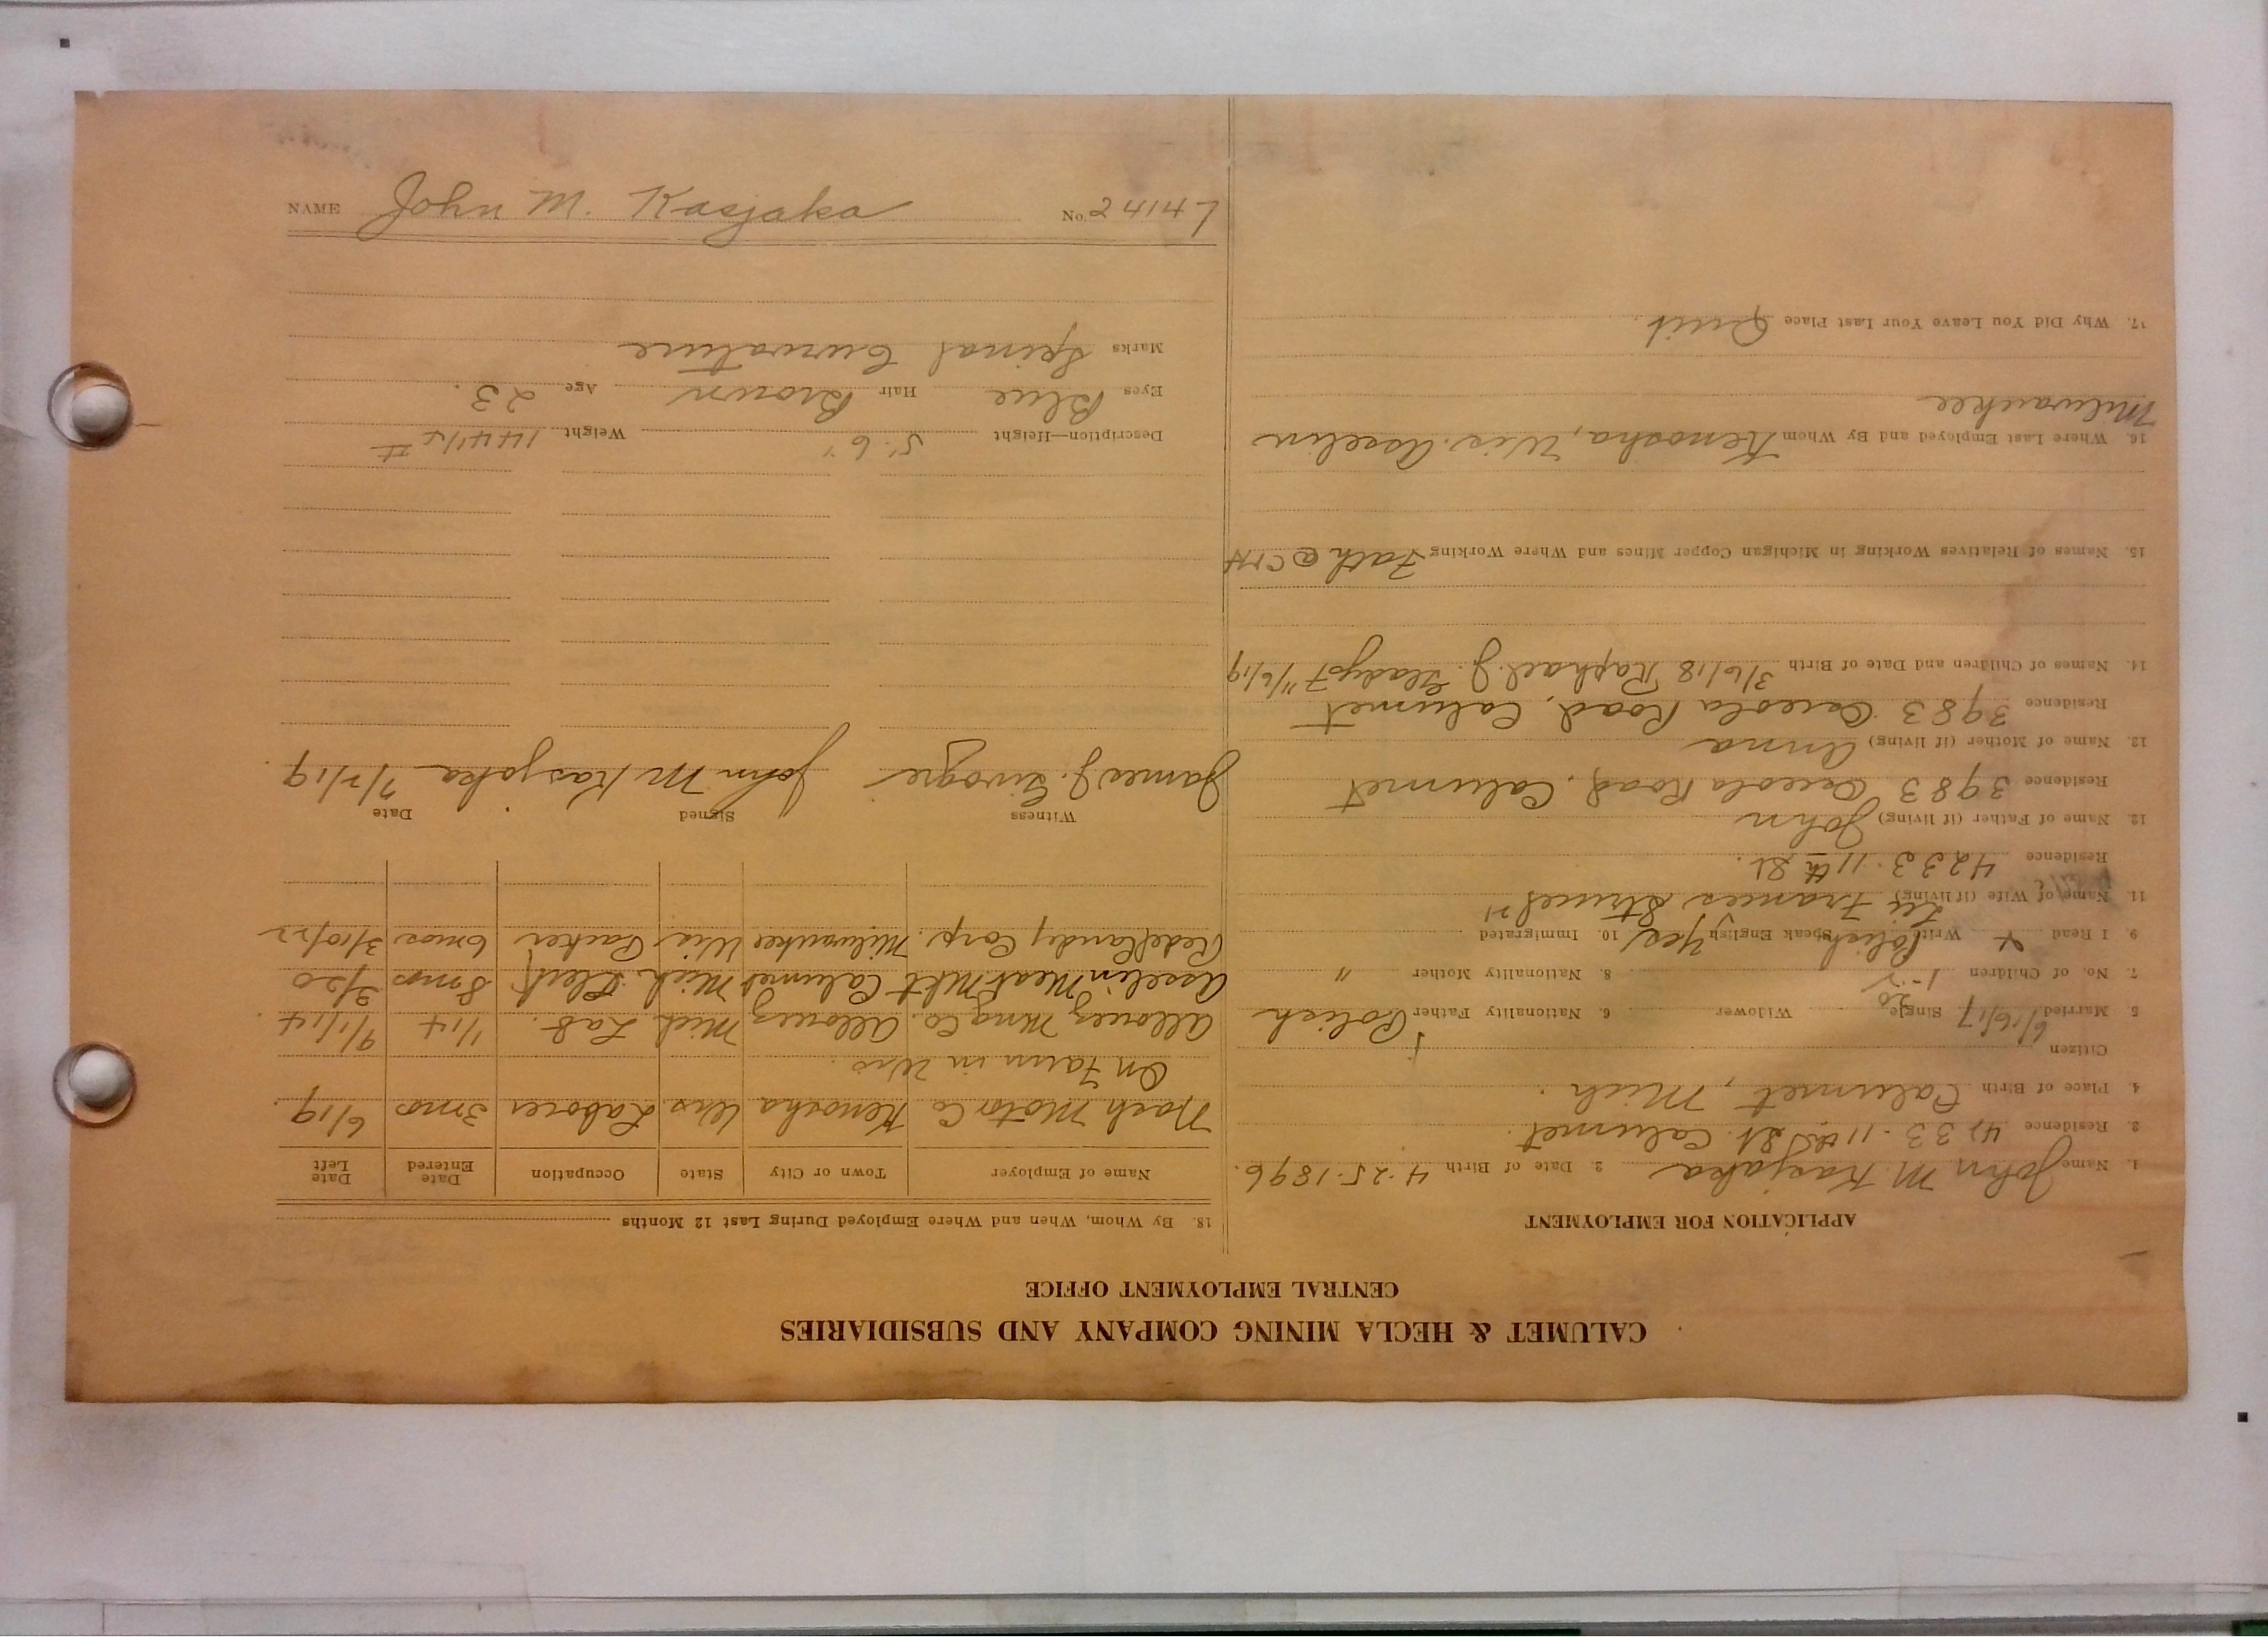 CALUMET & HECLA MINING COMPANY AND SUBSIDIARIES
CENTRAL EMPLOYMENT OFFICE
APPLICATION FOR EMPLOYMENT
1. Name John M Kasjaka 2. Date of Birth 4-25-1896.
3. Residence 4233-11th St. Calumet.
4 Place of Birth Calumet, Mich.
Citizen
5 Married 6/16/17 Single Widower 6. Nationality Father Polish
7. No. of Children 8. Nationality Mother "
9. I Read Write Polish Speak English Yes 10. Immigrated
11. Name of Wife (if living) Frances
Residence 4233-11th St.
12. Name of Father (if living) John
Residence 3983 Osceola Road, Calumet
12. Name of Mother (if living) Anna
Residence 3983 Osceola Road, Calumet
14. Names of Children and Date of Birth 3/6/18 Raphael J. Gladys 11/6/19
15. Names of Relatives Working in Michigan Copper Mines and Where Working Fath @ C&H
16. Where Last Employed and By Whom Kenosha, Wis. Asselin
Milwaukee
17. Why Did You Leave Your Last Place Quit.
18. By Whom, When and Where Employed During Last 12 Months
Name of Employer Town or City State Occupation Date Entered Date Left
Nash Motor Co Kenosha Wis Laborer 3 mos 6/19.
On Farm in Wis.
Allouez Mng Co. Allouez Mich Lab. 1/14 9/1/14.
Asselin Meat Mkt Calumet Mich Clerk 8 mos 3/20
Candy Corp. Milwaukee Wis Packer 6 mos 3/10/22
Witness Signed Date
James J. John M Kasjaka 7/2/19.
Description—Height 5' 6" Weight 144½ #
Eyes Blue Hair Brown Age 23.
Marks Spinal Curvature
NAME John M. Kasjaka No. 24147